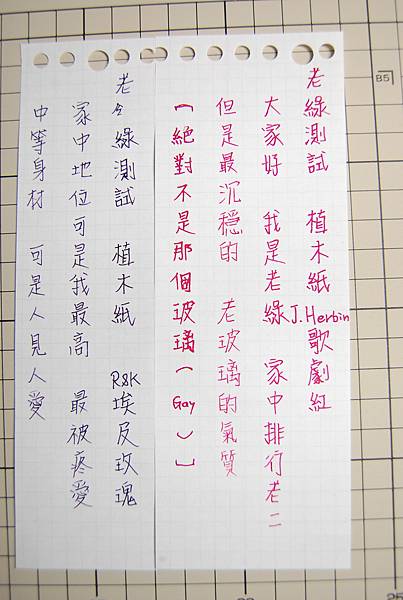 老綠測試 植木紙 J.Herbin歌劇紅
大家好 我是老綠 家中排行老二
但是最沉穩的 老玻璃的氣質
(絕對不是那個玻璃(Gay)]
老么綠測試 植木紙 R&K埃及玫瑰
家中地位可是我最高 最被疼愛
中等身材 可是人見人愛
B5
25